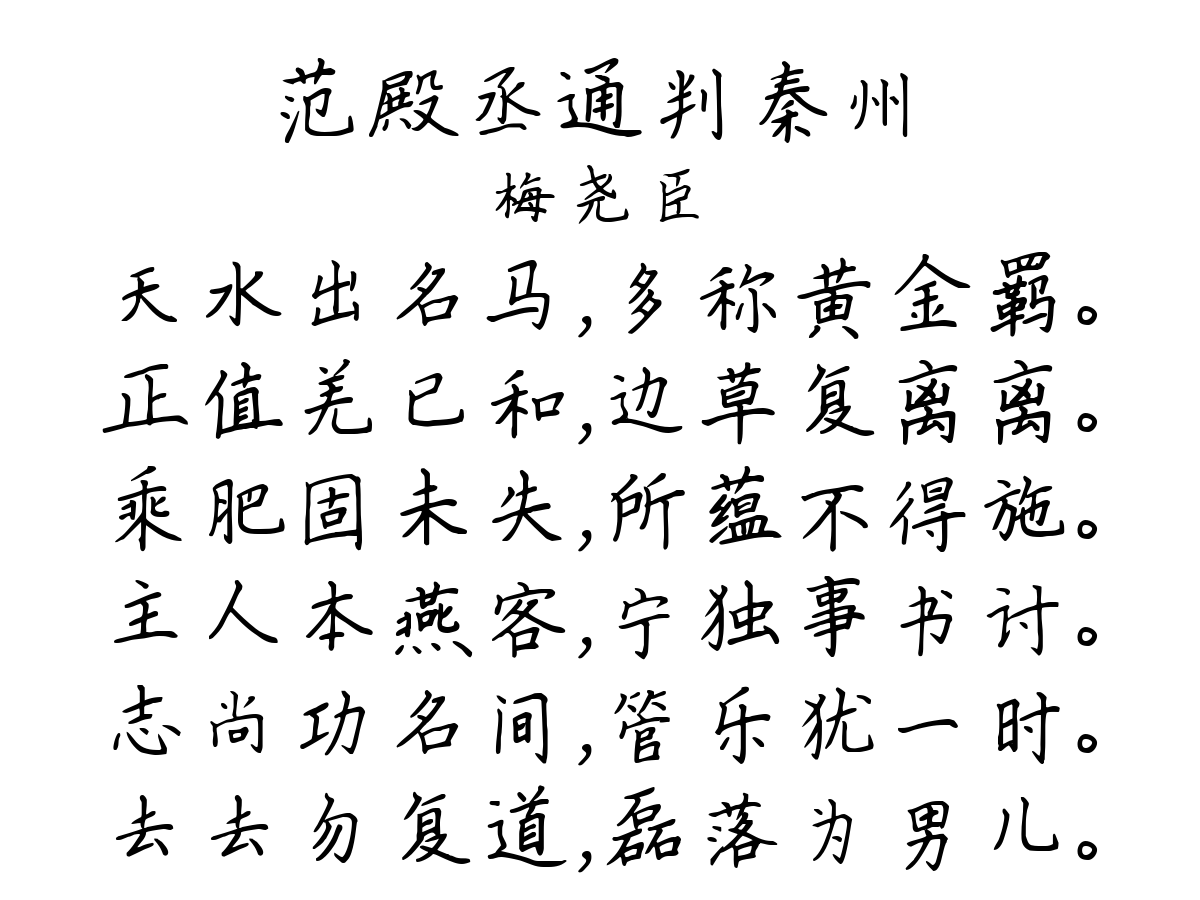 范殿丞通判秦州
梅尧臣
天水出名马,多称黄金羁。
正值羌已和,边草复离离。
乘肥固未失,所蕴不得施。
主人本燕客,宁独事书讨。
志尚功名间,管乐犹一时。
去去勿复道,磊落为男儿。